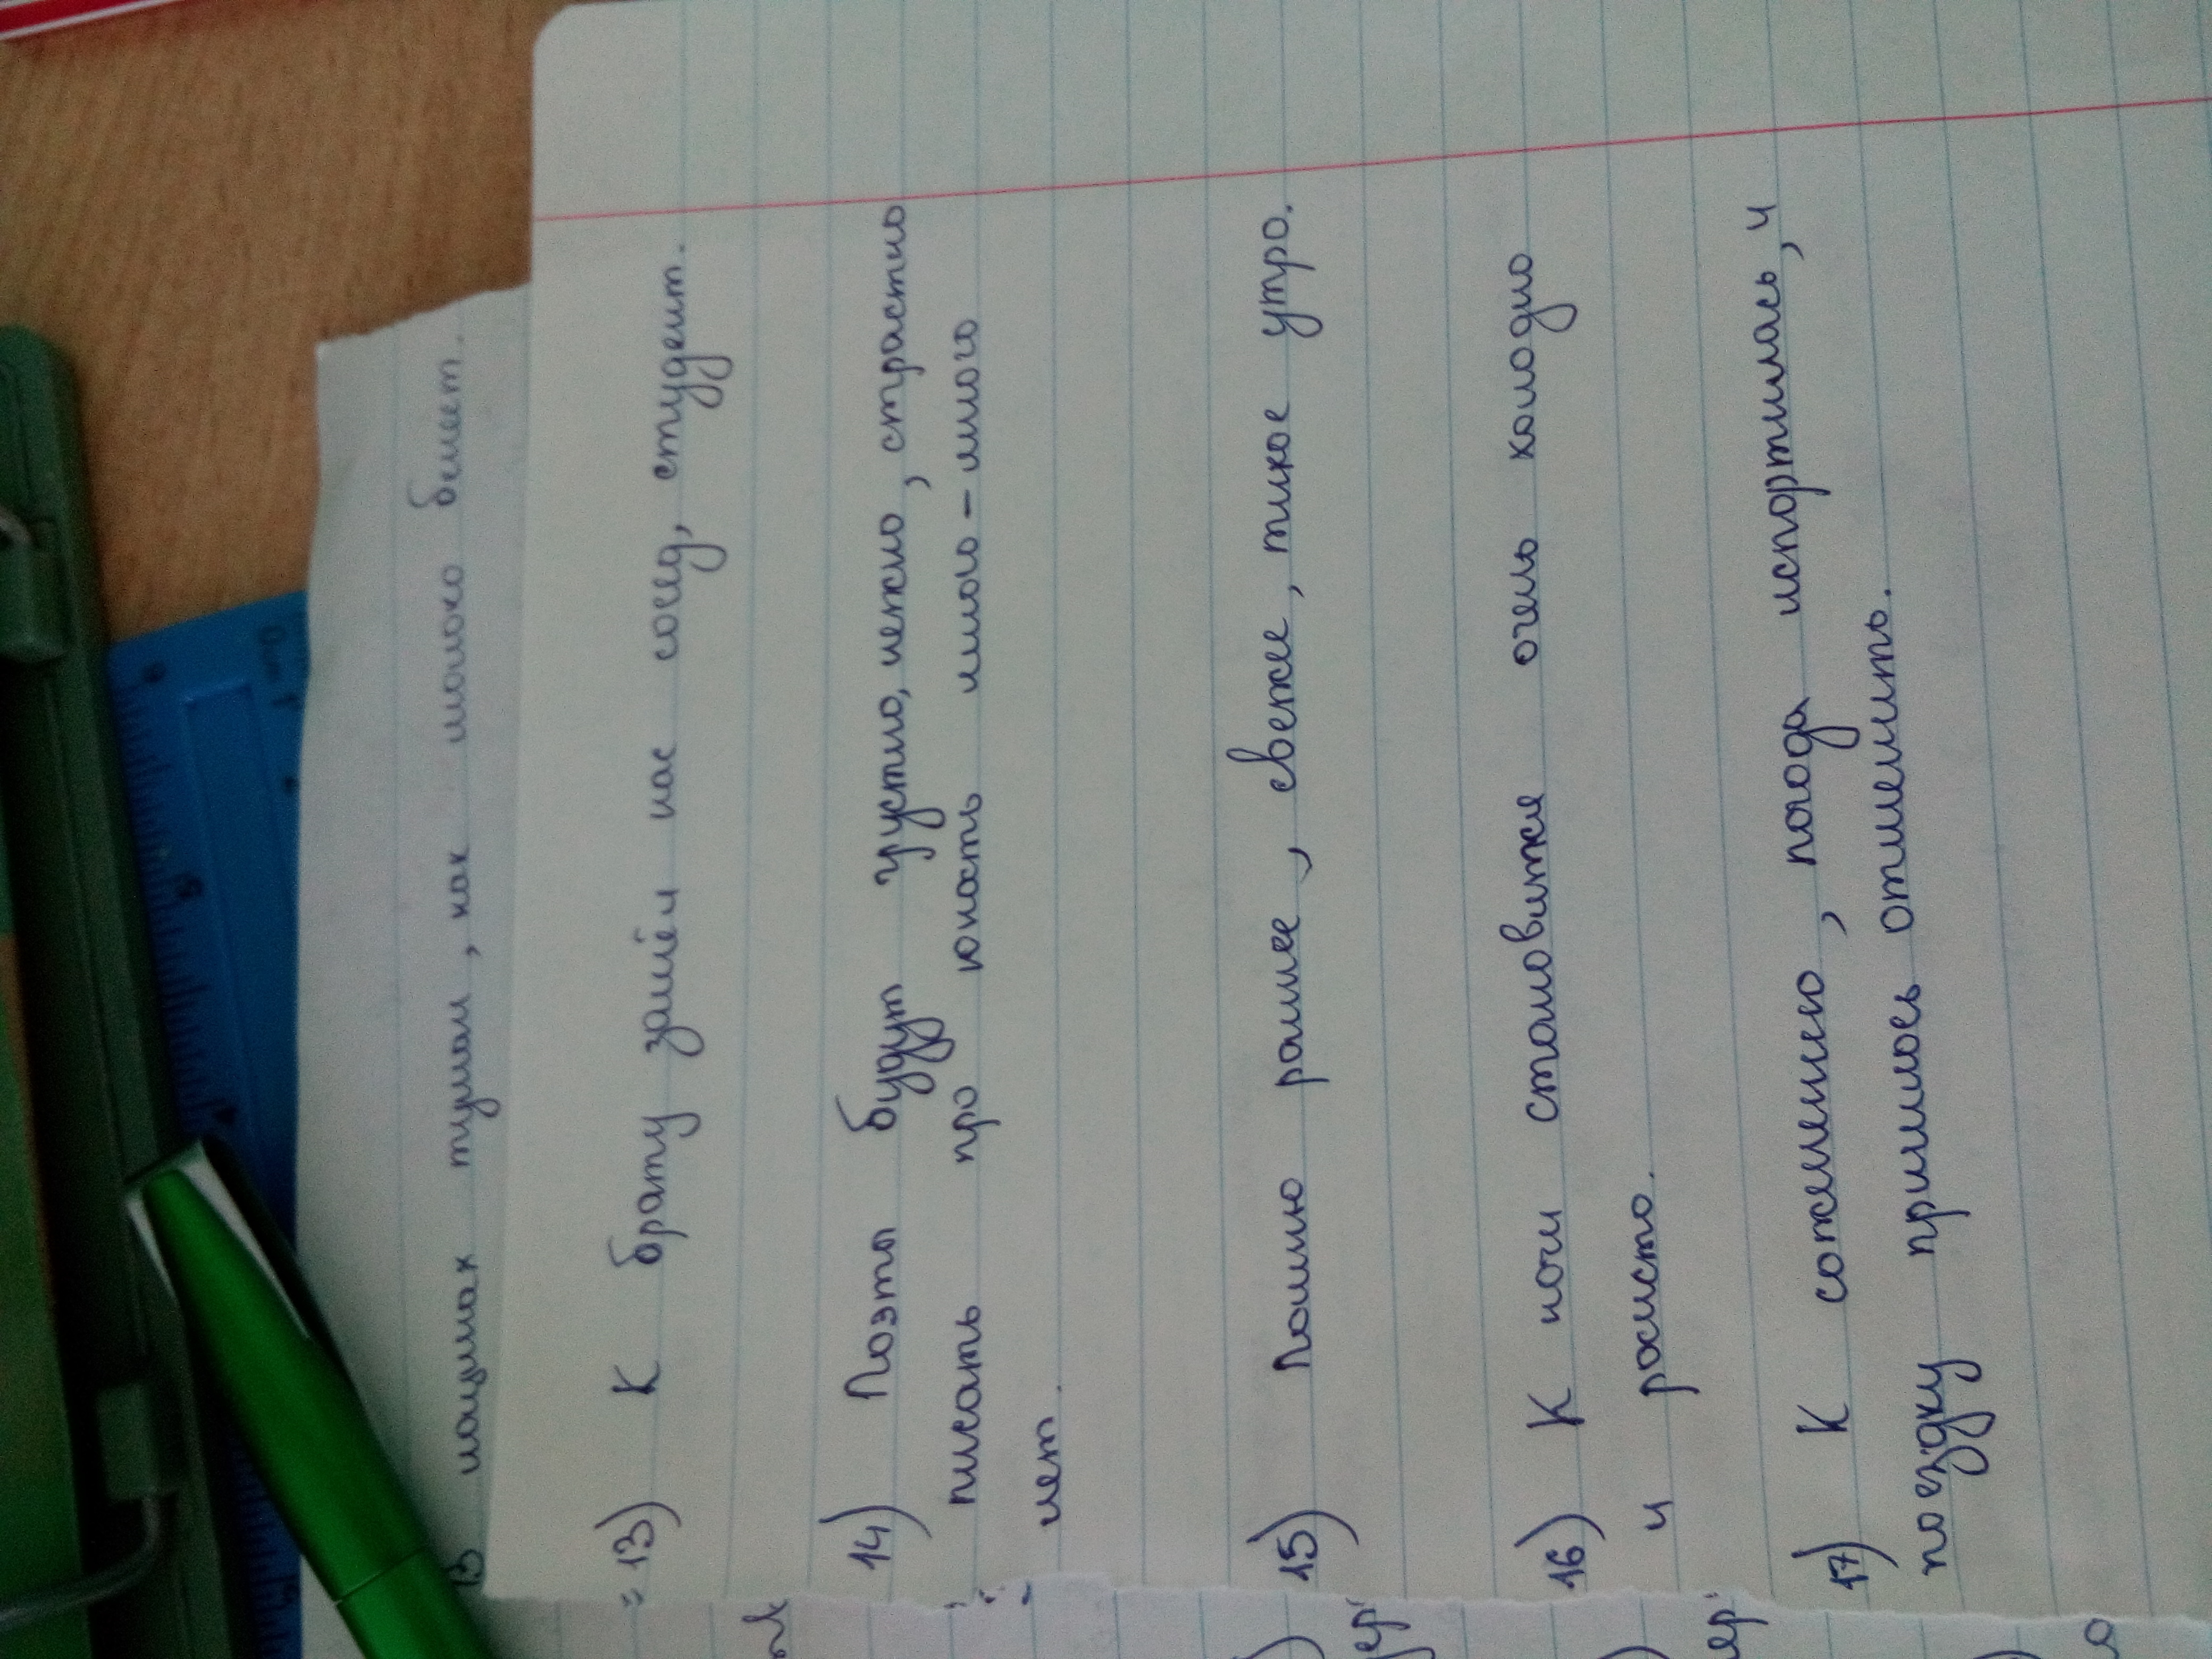 В низинах туман, как молоко белеет.
13) К брату зашёл нас сосед, студент.
14) Поэты будут грустно, нежно, страстно
писать про юность много - много
лет.
15) Помню раннее, свежее, тихое утро.
16) К ночи становится очень холодно
и росисто.
17) К сожалению, погода испортилась, и
поездку пришлось отменить.